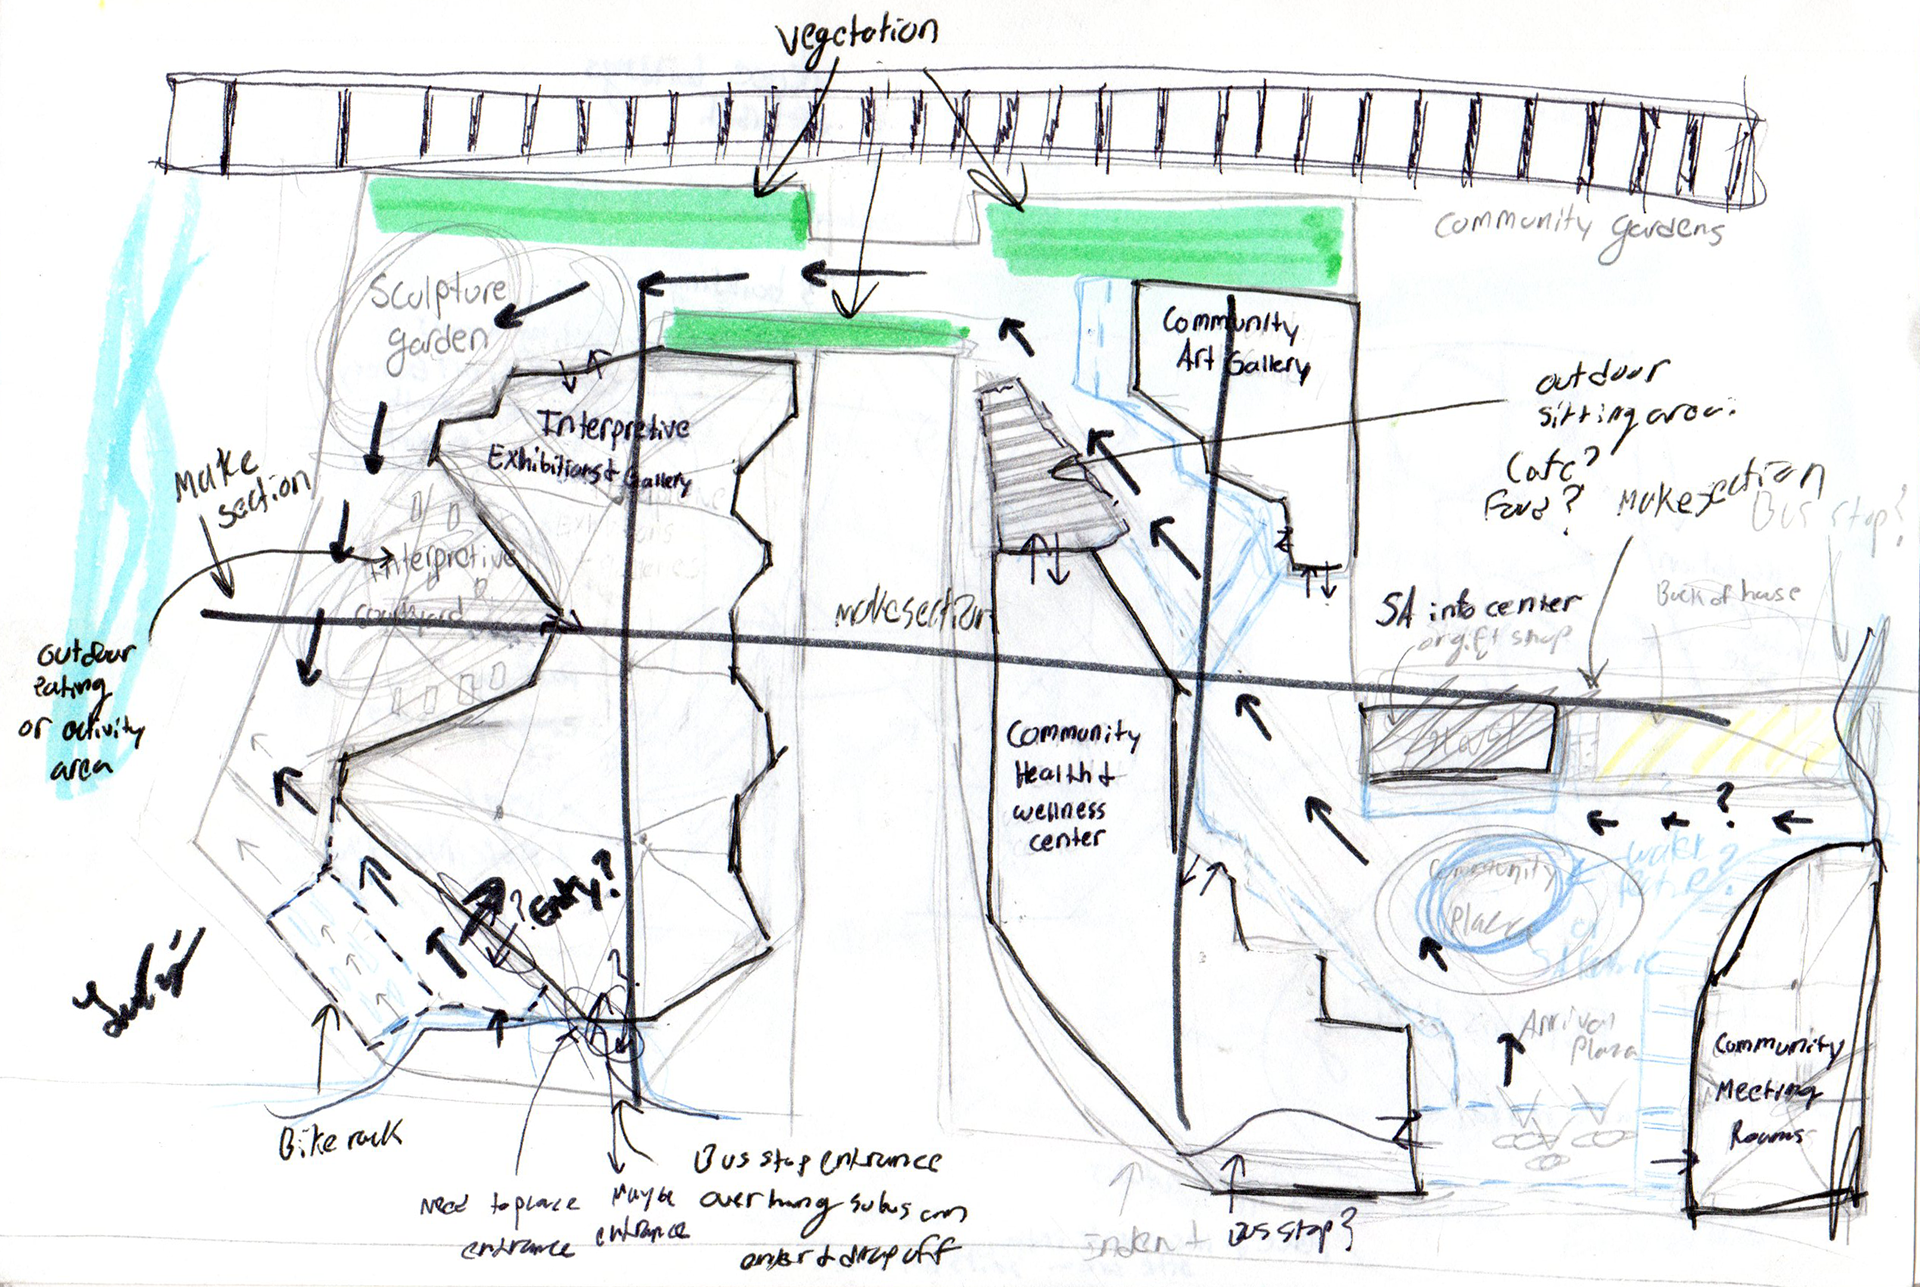 Vegetation
Community gardens
Sculpture
garden
Community
Art Gallery
outdoor
sitting area:
Cafe?
Food?
Make section
Bus stop?
Interpretive
Exhibitions & Gallery
Make
section
Interpretive
courtyard
make section
SA info center
or gift shop
Back of house
outdoor
eating
or activity
area
Community
Health &
wellness
center
?
Community
Plaza
water
feature?
or
? Entry?
Arrival
Plaza
Community
Meeting
Rooms
Bike rack
Need to place
entrance
Maybe
entrance
Bus stop entrance
over hang so bus can
enter & drop off
Indent
Bus stop?